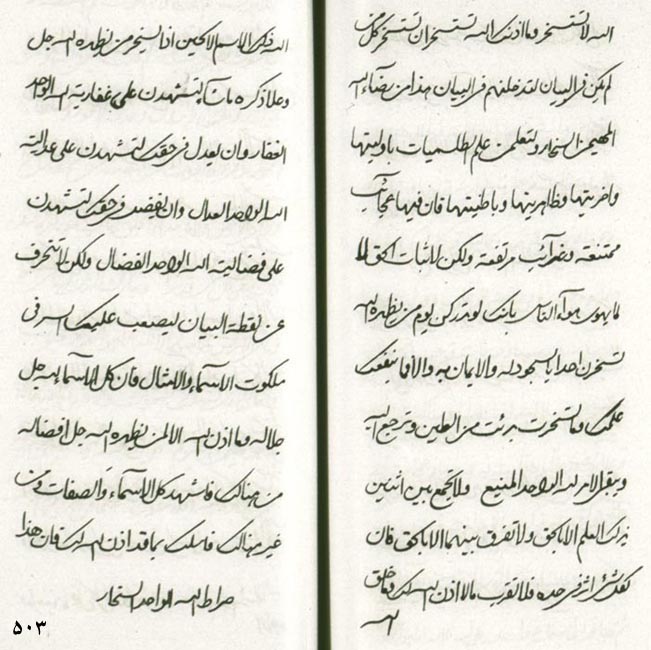 الله لا تستسخر وما اذنك الله تستسخران تستسخر كل من
لم يكن فى البيان لتدخلنهم فى البيان هذا من بضاء الله
المهيمن السخار ولتعلمن علم الطلسميات باوليتها
واخريتها وظاهريتها وباطنيتها فان فيها عجائب
ممتنعة وغرائب مرتفعة ولكن لاثبات الحق لا
لما يهوى هوآء الناس بانك لو تدركن يوم من يظهره الله
تسخرن احدا بالسجود له والايمان به والا فما ينفعك
علمك وما تسخرت برئت من العلين وترجع اليه
وبقى الامر لله الواحد المنيع ولا تجمع بين اثنين
بذلك العلم الا بالحق ولا تفرق بينهما الا بالحق فان
لكل شئ اثر فى حده ولا تقرب مالا اذن الله لك وما خلق
الله
الله ذلك الاسم الا لحين اذا تسخر من يظهره الله جل
وعلا ذكره ماشآء لتشهدن على غفارية الله الواحد
الغفار وان يعدل فى حقك لتشهدن على عدالته
الله الواحد العدال وان يفضل فى حقك لتشهدن
على فضاليته الله الواحد الفضال ولكن لا تنحرف
عن نقطة البيان ليصعب عليك السير فى
ملكوت الاسمآء والامثال فان كل الاسمآء لله جل
جلاله وما اذن الله الا لمن يظهره الله جل افضاله
من هنالك فاشهد كل الاسمآء والصفات ومن
غير هنالك فاسلك بما قد اذن الله لك فان هذا
صراط الله الواحد السخار
٥٠٣